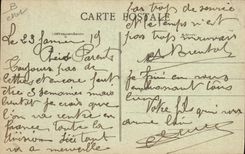 CARTE POSTALE
Le 23 Janvier 19
Chers Parents
Toujours pas de
lettres et encore peut
être 3 semaines mais
bientôt je crois que
l'on va rentre en
france toute la
division tout
va a merveille
pas trop de chose
et le temps n'est
pas trop mauvais
A Bientot
je fini en vous
embrassant tous
Votre fils qui vous
aime